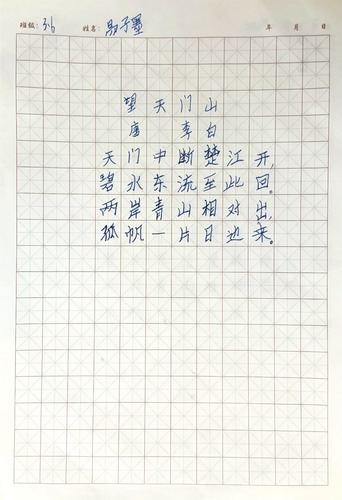 班级: 3.6 姓名: 易子墨 年 月 日
望天门山
唐 李白
天门中断楚江开,
碧水东流至此回。
两岸青山相对出,
孤帆一片日边来。